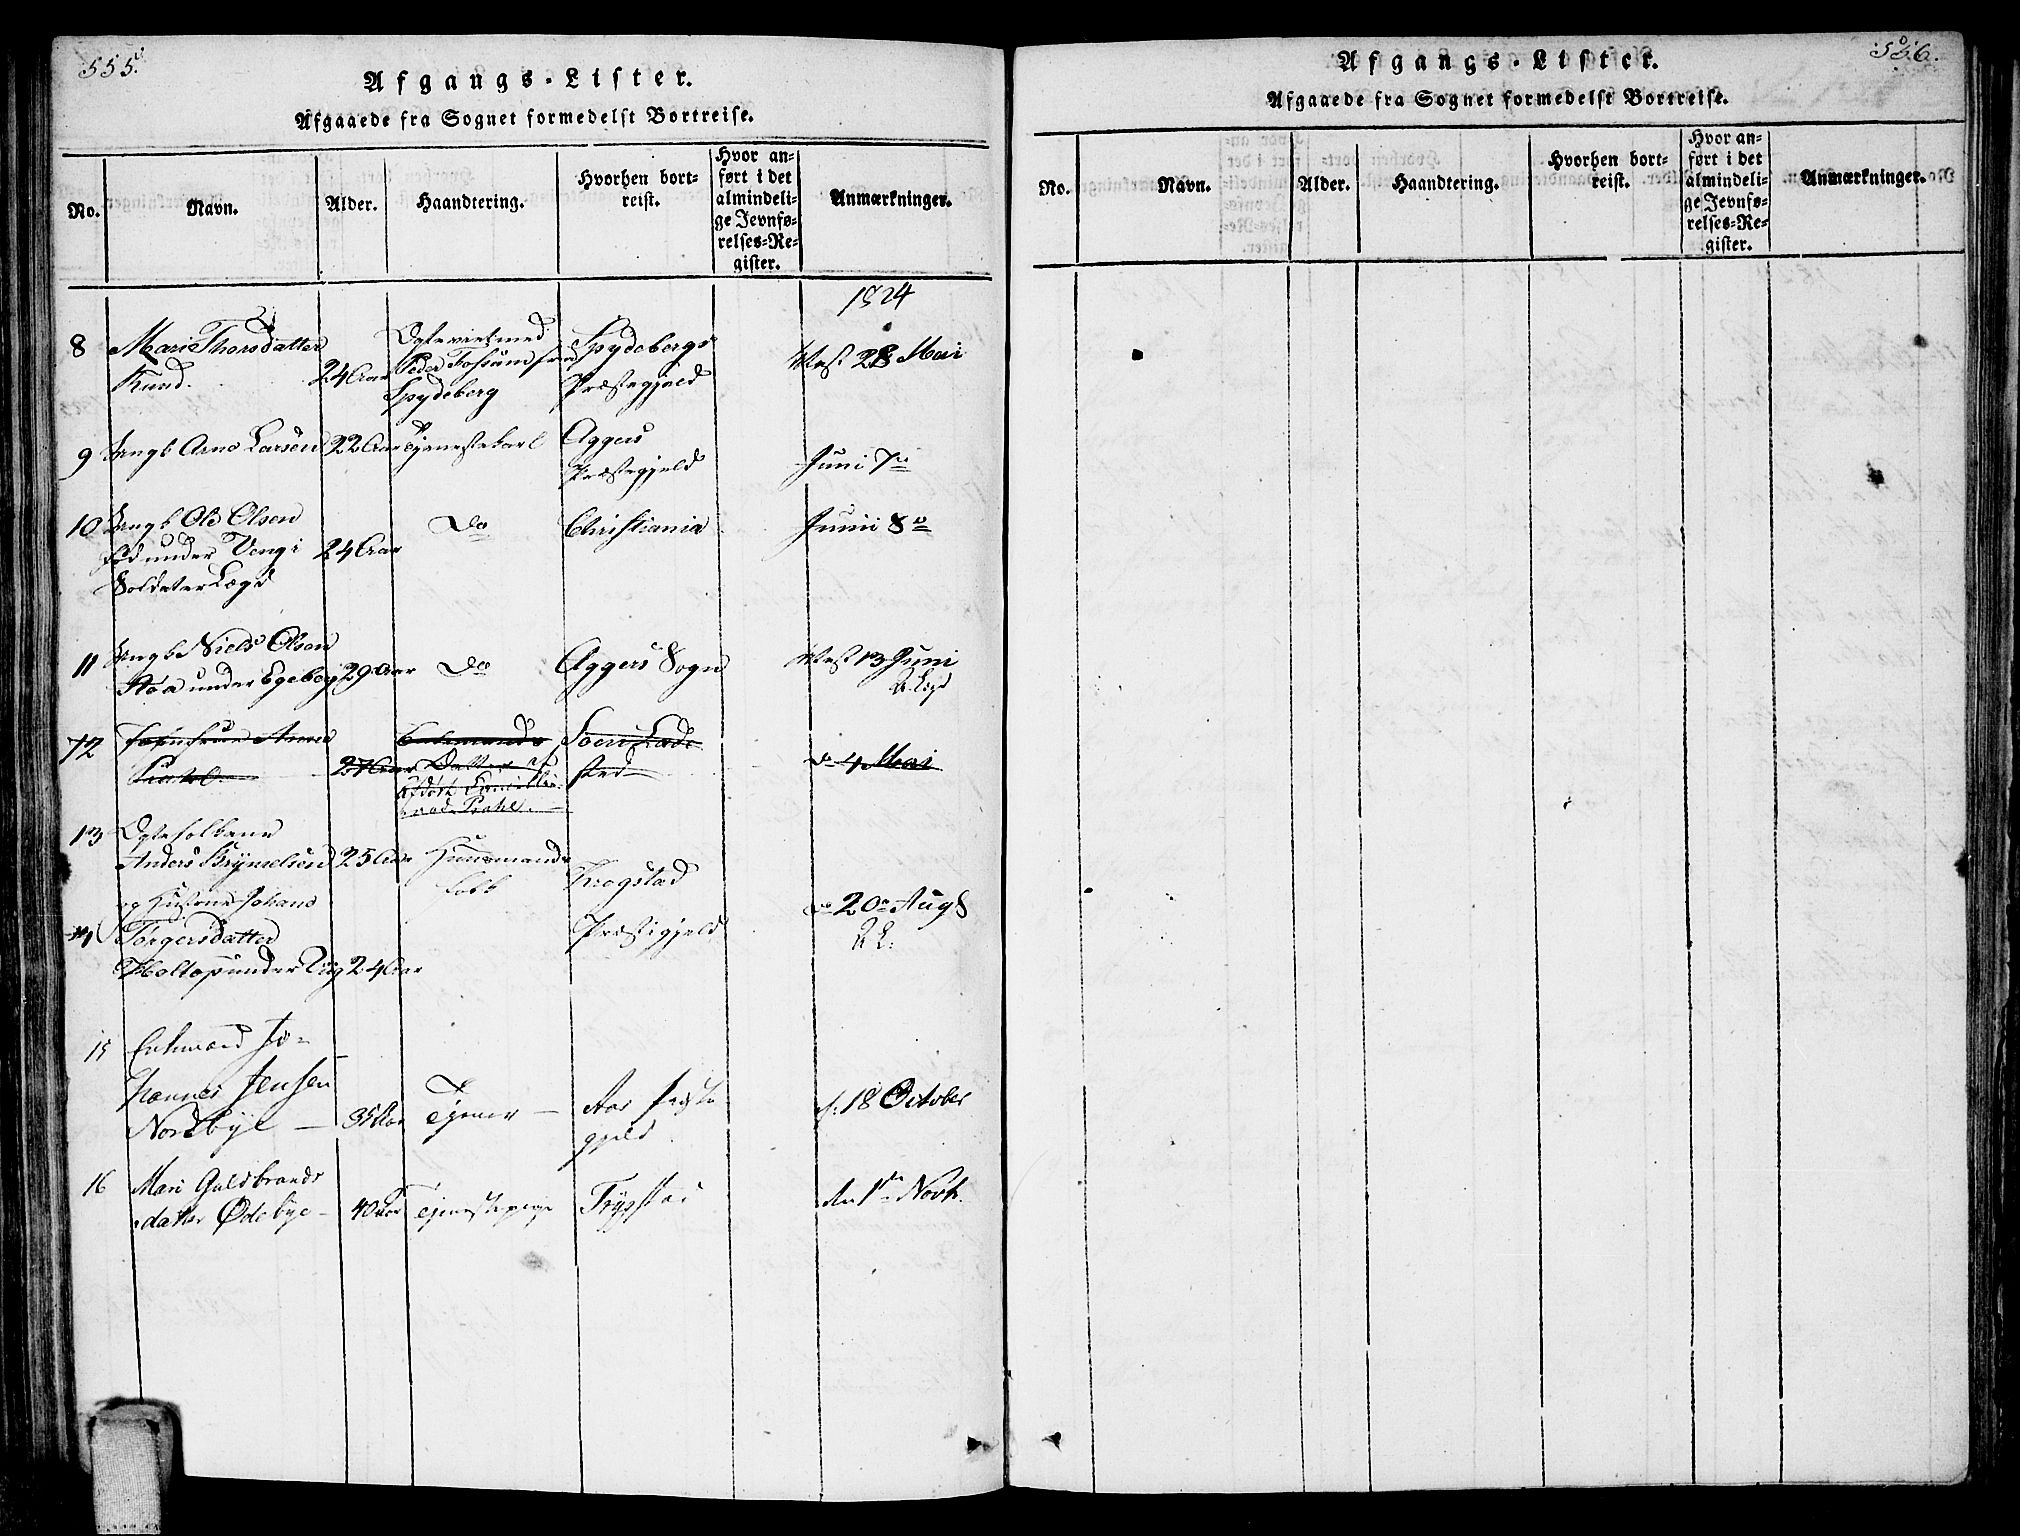 555.
Afgangs-Lister.
Afgaaede fra Sognet formedelst Bortreise.
No.
Navn.
Alder.
Haandtering.
Hvorhen bort-
reist.
Hvor an-
ført i det
almindeli-
ge Jevnfø-
relses-Re-
gister.
Anmærkninger.
1824
8 Mari Thorsdatter
Rund.
24 Aar
Peder Fossum fra
Spydeberg
Spydebergs
Præstegjeld
Attest 28 Mai
9 Ungk Arne Larsen 22 Aar Tjenestekarl
Aggers
Præstegjeld
Juni 7de
10 Ungk Ole Olsen
Fød under Veng i
Soldater Lægd
24 Aar
Do
Christiania
Junii 8de
11 Ungk Niels Olsen
Aaa under Egeberg 29 Aar
Do
Aggers Sogn
Attest 13 Juni
12 Jomfrue Anna
27 Aar
Datter af
Soen Lade-
sted
do 4 Mai
13 Ægtefolkene
Anders Brynielsen 25 Aar
Huusmands
folk
og Hustrue Johane
14 Torgersdatter
Holtop under 24 Aar
Krogstad
Præstegjeld
do 20de Aug
15 Enkemand Jo-
hannes Jensen
Nordbye 35 Aar
Tjener
Aas Præste-
gjeld
d: 18 October
16 Mari Guldbrands-
datter Ødebye 40 Aar Tjenestepige
Trygstad
den 1ste Novb.
556.
Afgangs-Lister.
Afgaaede fra Sognet formedelst Bortreise.
No.
Navn.
Alder.
Haandtering.
Hvorhen bort-
reist.
Hvor an-
ført i det
almindeli-
ge Jevnfø-
relses-Re-
gister.
Anmærkninger.